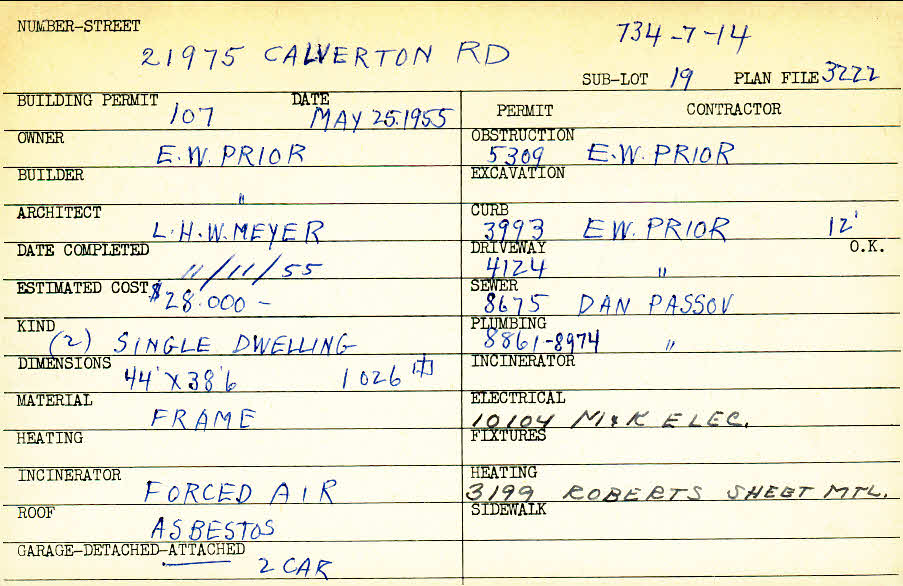 NUMBER-STREET
21975 CALVERTON RD
734-7-14
SUB-LOT 19 PLAN FILE 3222
BUILDING PERMIT 107 DATE MAY 25.1955
PERMIT CONTRACTOR
OWNER E.W. PRIOR
OBSTRUCTION 5309 E.W. PRIOR
BUILDER "
EXCAVATION
ARCHITECT L.H.W. MEYER
CURB 3993 E.W. PRIOR 12'
DATE COMPLETED 11/11/55
DRIVEWAY 4124 " O.K.
ESTIMATED COST $28.000 -
SEWER 8675 DAN PASSOV
KIND (2) SINGLE DWELLING
PLUMBING 8861-8974 "
DIMENSIONS 44' X 38'6 1026
INCINERATOR
MATERIAL FRAME
ELECTRICAL 10104 M & K ELEC.
HEATING
FIXTURES
INCINERATOR FORCED AIR
HEATING 3199 ROBERTS SHEET MTL.
ROOF ASBESTOS
SIDEWALK
GARAGE-DETACHED-ATTACHED 2 CAR